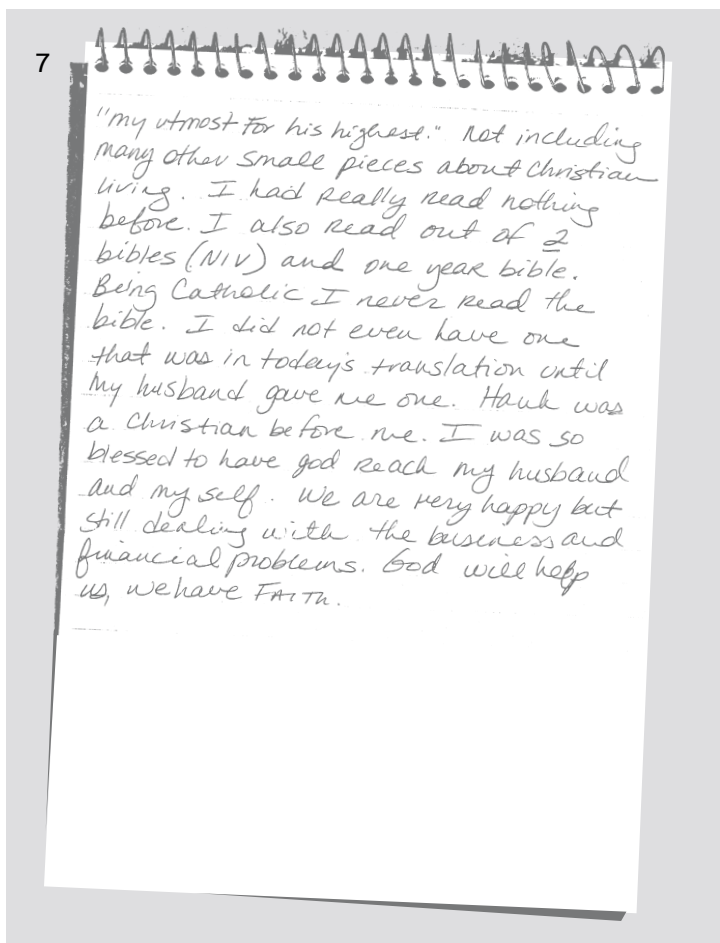 7
"my utmost For his highest." Not including
many other small pieces about Christian
living. I had Really read nothing
before. I also Read out of 2
bibles (NIV) and one year bible.
Being Catholic I never Read the
bible. I did not even have one
that was in today's translation until
my husband gave me one. Hank was
a Christian before me. I was so
blessed to have god Reach my husband
and my self. We are very happy but
still dealing with the business and
financial problems. God will help
us, we have FAITH.